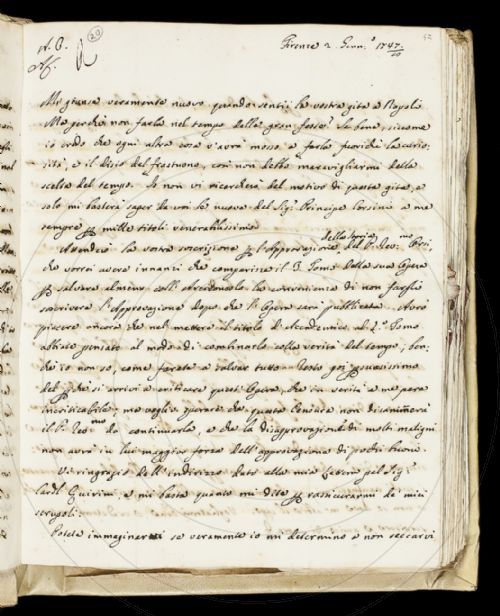 A. C.
Af.
20
Firenze 2. Genn.° 1747/8
52
Mi giunse veramente nuovo quando sentii la vostra gita a Napoli
Ma perchè non farla nel tempo delle gran feste? Se bene, siccome
io credo che ogni altra cosa v'avrà mosso a farla fuorichè la curio
sità, e il disio del frastuono, così non debbo maravigliarmi della
scelta del tempo. Io non vi ricercherò del motivo di questa gita, e
solo mi basterà saper da voi le nuove del Sig.r Principe Corsini a me
sempre per mille titoli venerabilissimo
Attenderò la vostra soscrizione per l'approvazione della storia, del P.
che vorrei avere innanzi che comparisse il 3. Tomo della sua Opera
per salvare almeno coll' la convenienza di non farla
soscrivere l'Approvazione dopo che l'Opera sarà pubblicata. Avrò
piacere ancora che nel mettere il titolo di Accademico al 2.° Tomo
abbiate pensato al modo di combinarlo colla verità del tempo, ben
che io non so, come farete a salvar tutto. Resto poi
del che si arrivi a criticare quest'Opera, che in verità a me pare
incriticabile, ma voglio sperare che questa Censura non disanimerà
il P. Rev.mo da continuarla, e che la disapprovazione di molti maligni
non avrà in lui maggior forza dell'approvazione di pochi buoni
Vi ringrazio dell'indirizzo dato alla mia pel Sig.r
Card.l Quirini, e mi basta quanto mi dite per rassicurarmi de' miei
scrupoli.
Potete immaginarvi se veramente io mi determino a non seccarvi